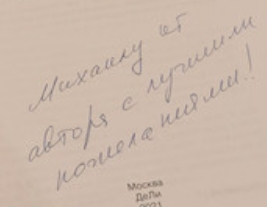 Михаилу от
автора с лучшими
пожеланиями!
Москва
ДеЛи
2021